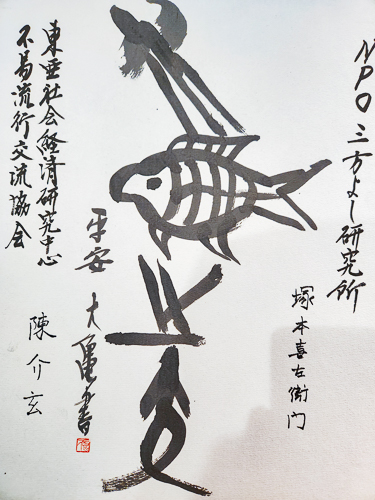 NPO三方よし研究所
塚本喜左衛門
平安 大龜書
東亜社会経済研究中心
不易流行交流協会
陳介玄